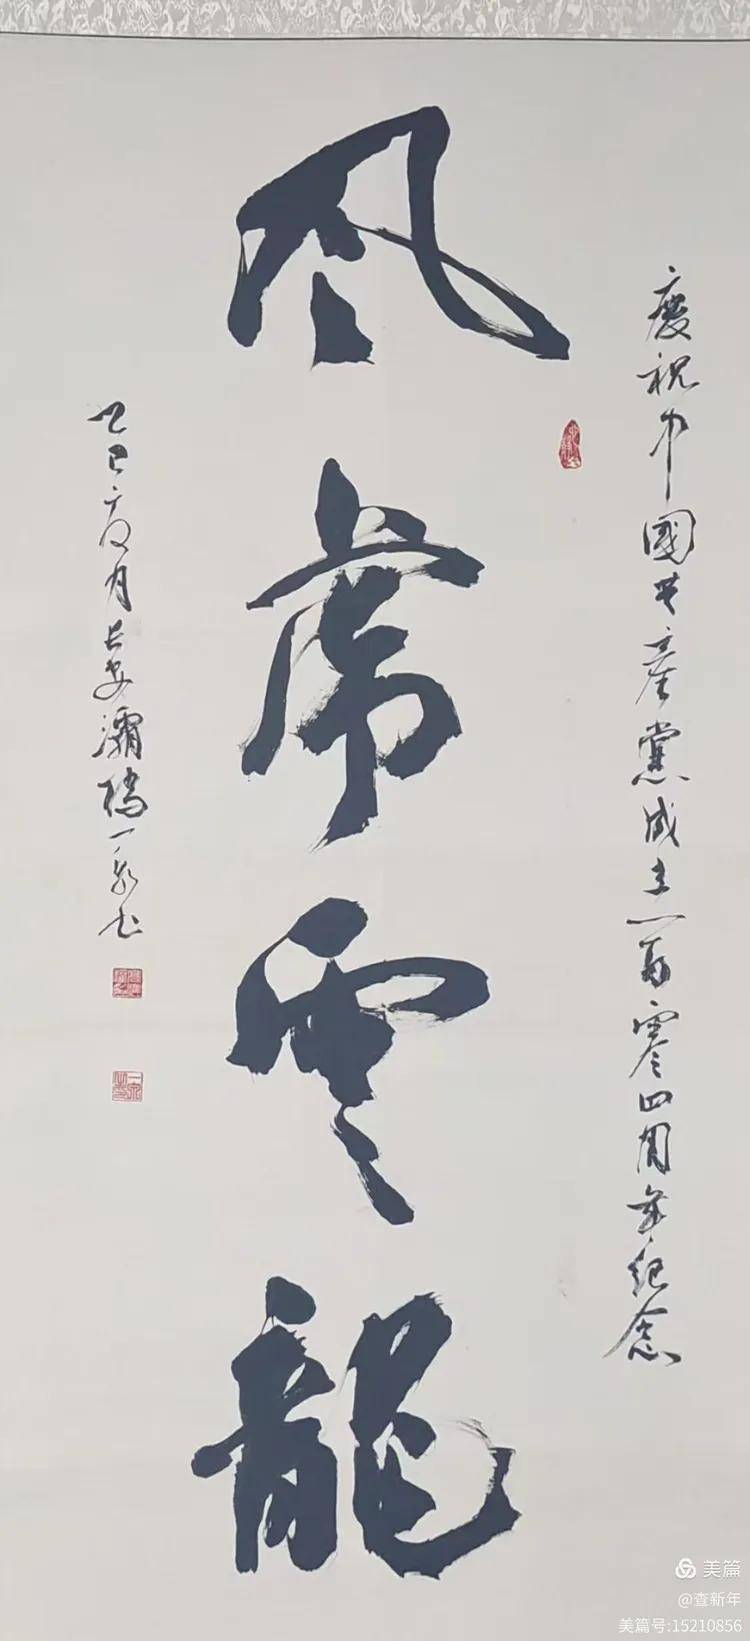 慶祝中國共產黨成立一百零四周年纪念
风虎雲龍
乙巳夏月长安灞橋一泉书
美篇
@查新年
美篇号:15210856